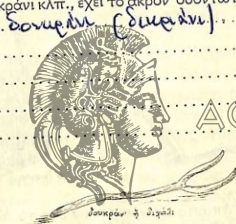 κράνι κλπ., ἔχει τὸ ἄκρον
δουκράνι (δικράνι)
ΑΘ
δουκράν ἢ διχάλι